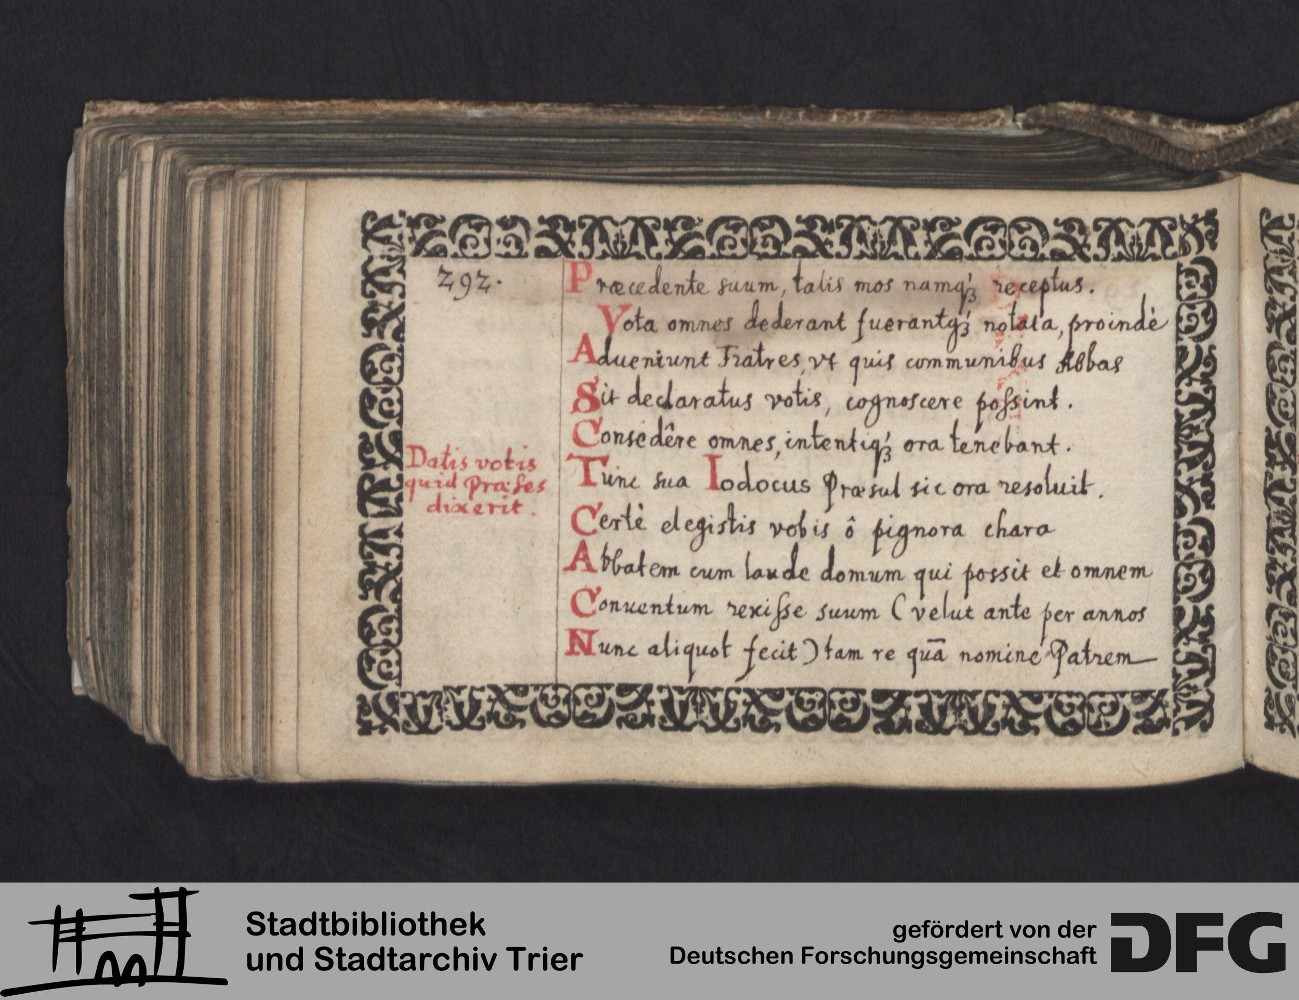 292.
Præcedente suum, talis mos namq́ꝫ receptus.
Vota omnes dederant fuerantq́ꝫ notata, proindè
Adueniunt Fratres, vt quis communibus Abbas
Sit declaratus votis, cognoscere poſsint.
Consedêre omnes, intentiq́ꝫ ora tenebant.
Datis votis
quid Præses
dixerit.
Tunc sua Iodocus Præsul sic ora resoluit.
Certè elegistis vobis ô pignora chara
Abbatem cum laude domum qui possit et omnem
Conuentum rexiſse suum (velut ante per annos
Nunc aliquot fecit) tam re quā nomine Patrem
Stadtbibliothek
und Stadtarchiv Trier
gefördert von der
Deutschen Forschungsgemeinschaft
DFG